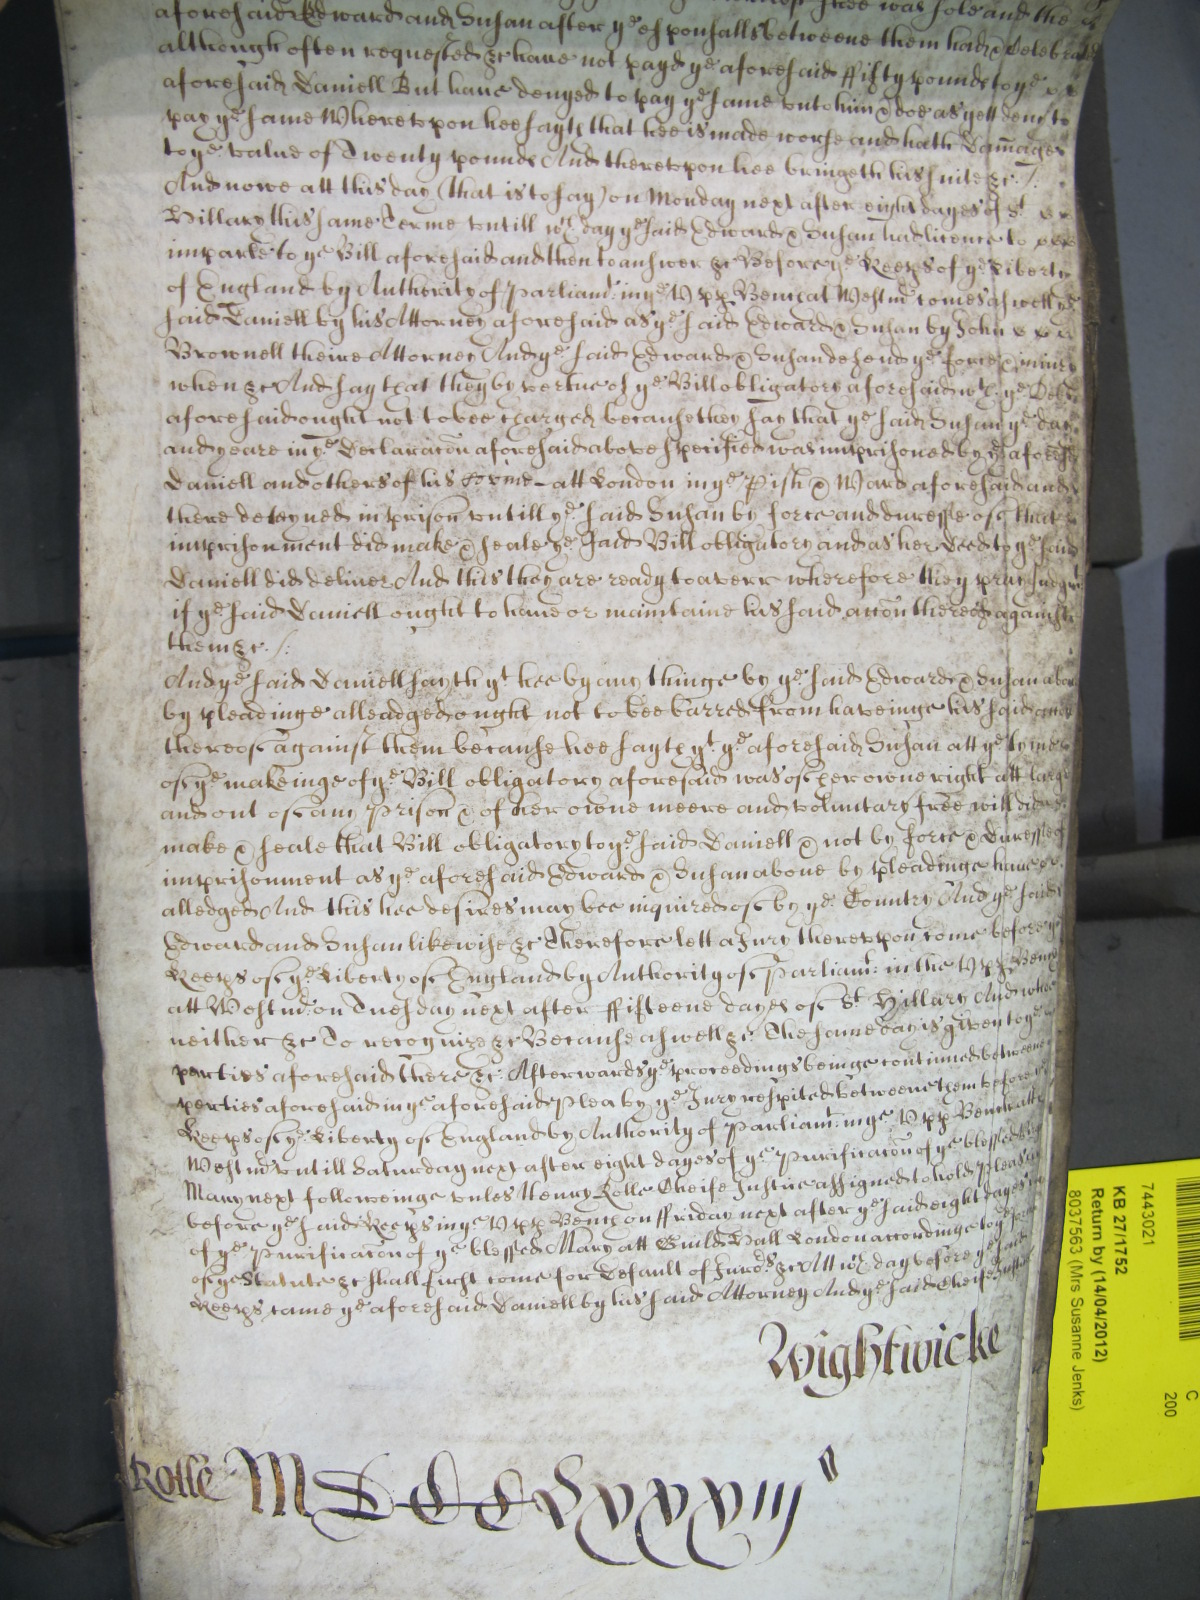 shee was sole and the
aforesaid Edward and Susan after ye espousalls betweene them had & Celebrated
although often requested &c have not payd ye aforesaid ffifty pounds to ye
aforesaid Daniell But have denyed to pay ye same unto him & doe as yett deny to
pay ye same Whereupon hee sayth that hee is made worse and hath Damages
to ye value of Twenty pounds And thereupon hee bringeth his suite &c./
And nowe att this day (that is to say) on Monday next after eight dayes of St
Hillary this same Terme untill wch day ye said Edward & Susan had licence to
imparle to ye Bill aforesaid and then to answer &c Before ye Keeps of ye Liberty
of England by Authority of Parliamt in ye Upp Bench at Westmr comes aswell ye
said Daniell by his Attorney aforesaid as ye said Edward & Susan by John
Brownell theire Attorney And ye said Edward & Susan defend ye force & iniury
when &c And say that they by vertue of ye Bill obligatory aforesaid wth ye Debt
aforesaid ought not to bee charged because they say that ye said Susan ye day
and yeare in ye Declaracon aforesaid above specified was imprisoned by ye aforesd
Daniell and others of his Covine att London in ye Pish & Ward aforesaid and
there deteyned in prison untill ye said Susan by force and duresse of that
imprisonment did make & seale ye said Bill obligatory and as her Deed to ye said
Daniell did deliver And this they are ready to averr wherefore they pray Judgmt
if ye said Daniell ought to have or maintaine his said accon thereof against
them &c./:
And ye said Daniell sayth yt hee by any thinge by ye said Edward & Susan above
by pleadinge alleadged ought not to bee barred from haveinge his said accon
thereof against them because hee sayth yt ye aforesaid Susan att ye tyme
of ye makeinge of ye Bill obligatory aforesaid was of her owne right att large
and out of any Prison & of her owne meere and voluntary free will did
make & seale that Bill obligatory to ye said Daniell & not by force & Duresse of
imprisonment as ye aforesaid Edward & Susan above by pleadinge have
alledged And this hee desires may bee inquired of by ye Country And ye said
Edward and Susan likewise &c Therefore lett a Jury thereupon come before ye
Keeps of ye Liberty of England by Authority of Parliamt: in the Upp Bench
att Westmr on Tuesday next after ffifteene dayes of St Hillary And whoe
neither &c To recognize &c Because aswell &c The same day is given to ye
parties aforesaid there &c. Afterwards ye proceedings beinge continued betweene
perties aforesaid in ye aforesaid Plea by ye Jury respited betweene them before
Keeps of ye Liberty of England by Authority of Parliamt: in ye Upp Bench att
Westmr untill Saturday next after eight dayes of ye Purificacon of ye blessed
Mary next followeinge unles Henry Rolle Cheife Justice assigned to hold Pleas
before ye said Keeps in ye Upp Bench on ffriday next after ye said eight dayes
of ye Purificacon of ye blessed Mary att Guild Hall London accordinge to ye
of ye Statute &c shall first come for Default of Jurors &c Att wch day before ye said
Keeps came ye aforesaid Daniell by his said Attorney And ye said Cheife Justice
Wightwicke
Rolle MDCCLXXXIII
7443021
KB 27/1752
Return by (14/04/2012)
8037563 (Mrs Susanne Jenks)
C
200